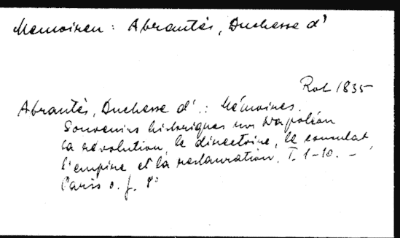 Memoiren: Abrantès, Duchesse d'
Rol 1835
Abrantès, Duchesse d'.: Mémoires.
Souvenirs historiques sur Napoléon
la révolution, le directoire, le consulat,
l'empire et la restauration. T. 1-10. –
Paris o. J. 8°